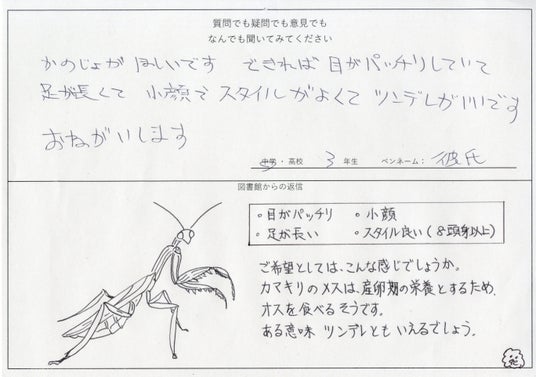 質問でも疑問でも意見でも
なんでも聞いてみてください
かのじょが ほしいです できれば 目がパッチリしていて
足が長くて 小顔で スタイルがよくて ツンデレがいいです
おねがいします
中学・高校 3年生 ペンネーム:彼氏
図書館からの返信
・目がパッチリ ・小顔
・足が長い ・スタイル良い(8頭身以上)
ご希望としては、こんな感じでしょうか。
カマキリのメスは、産卵期の栄養とするため、
オスを食べるそうです。
ある意味 ツンデレともいえるでしょう。